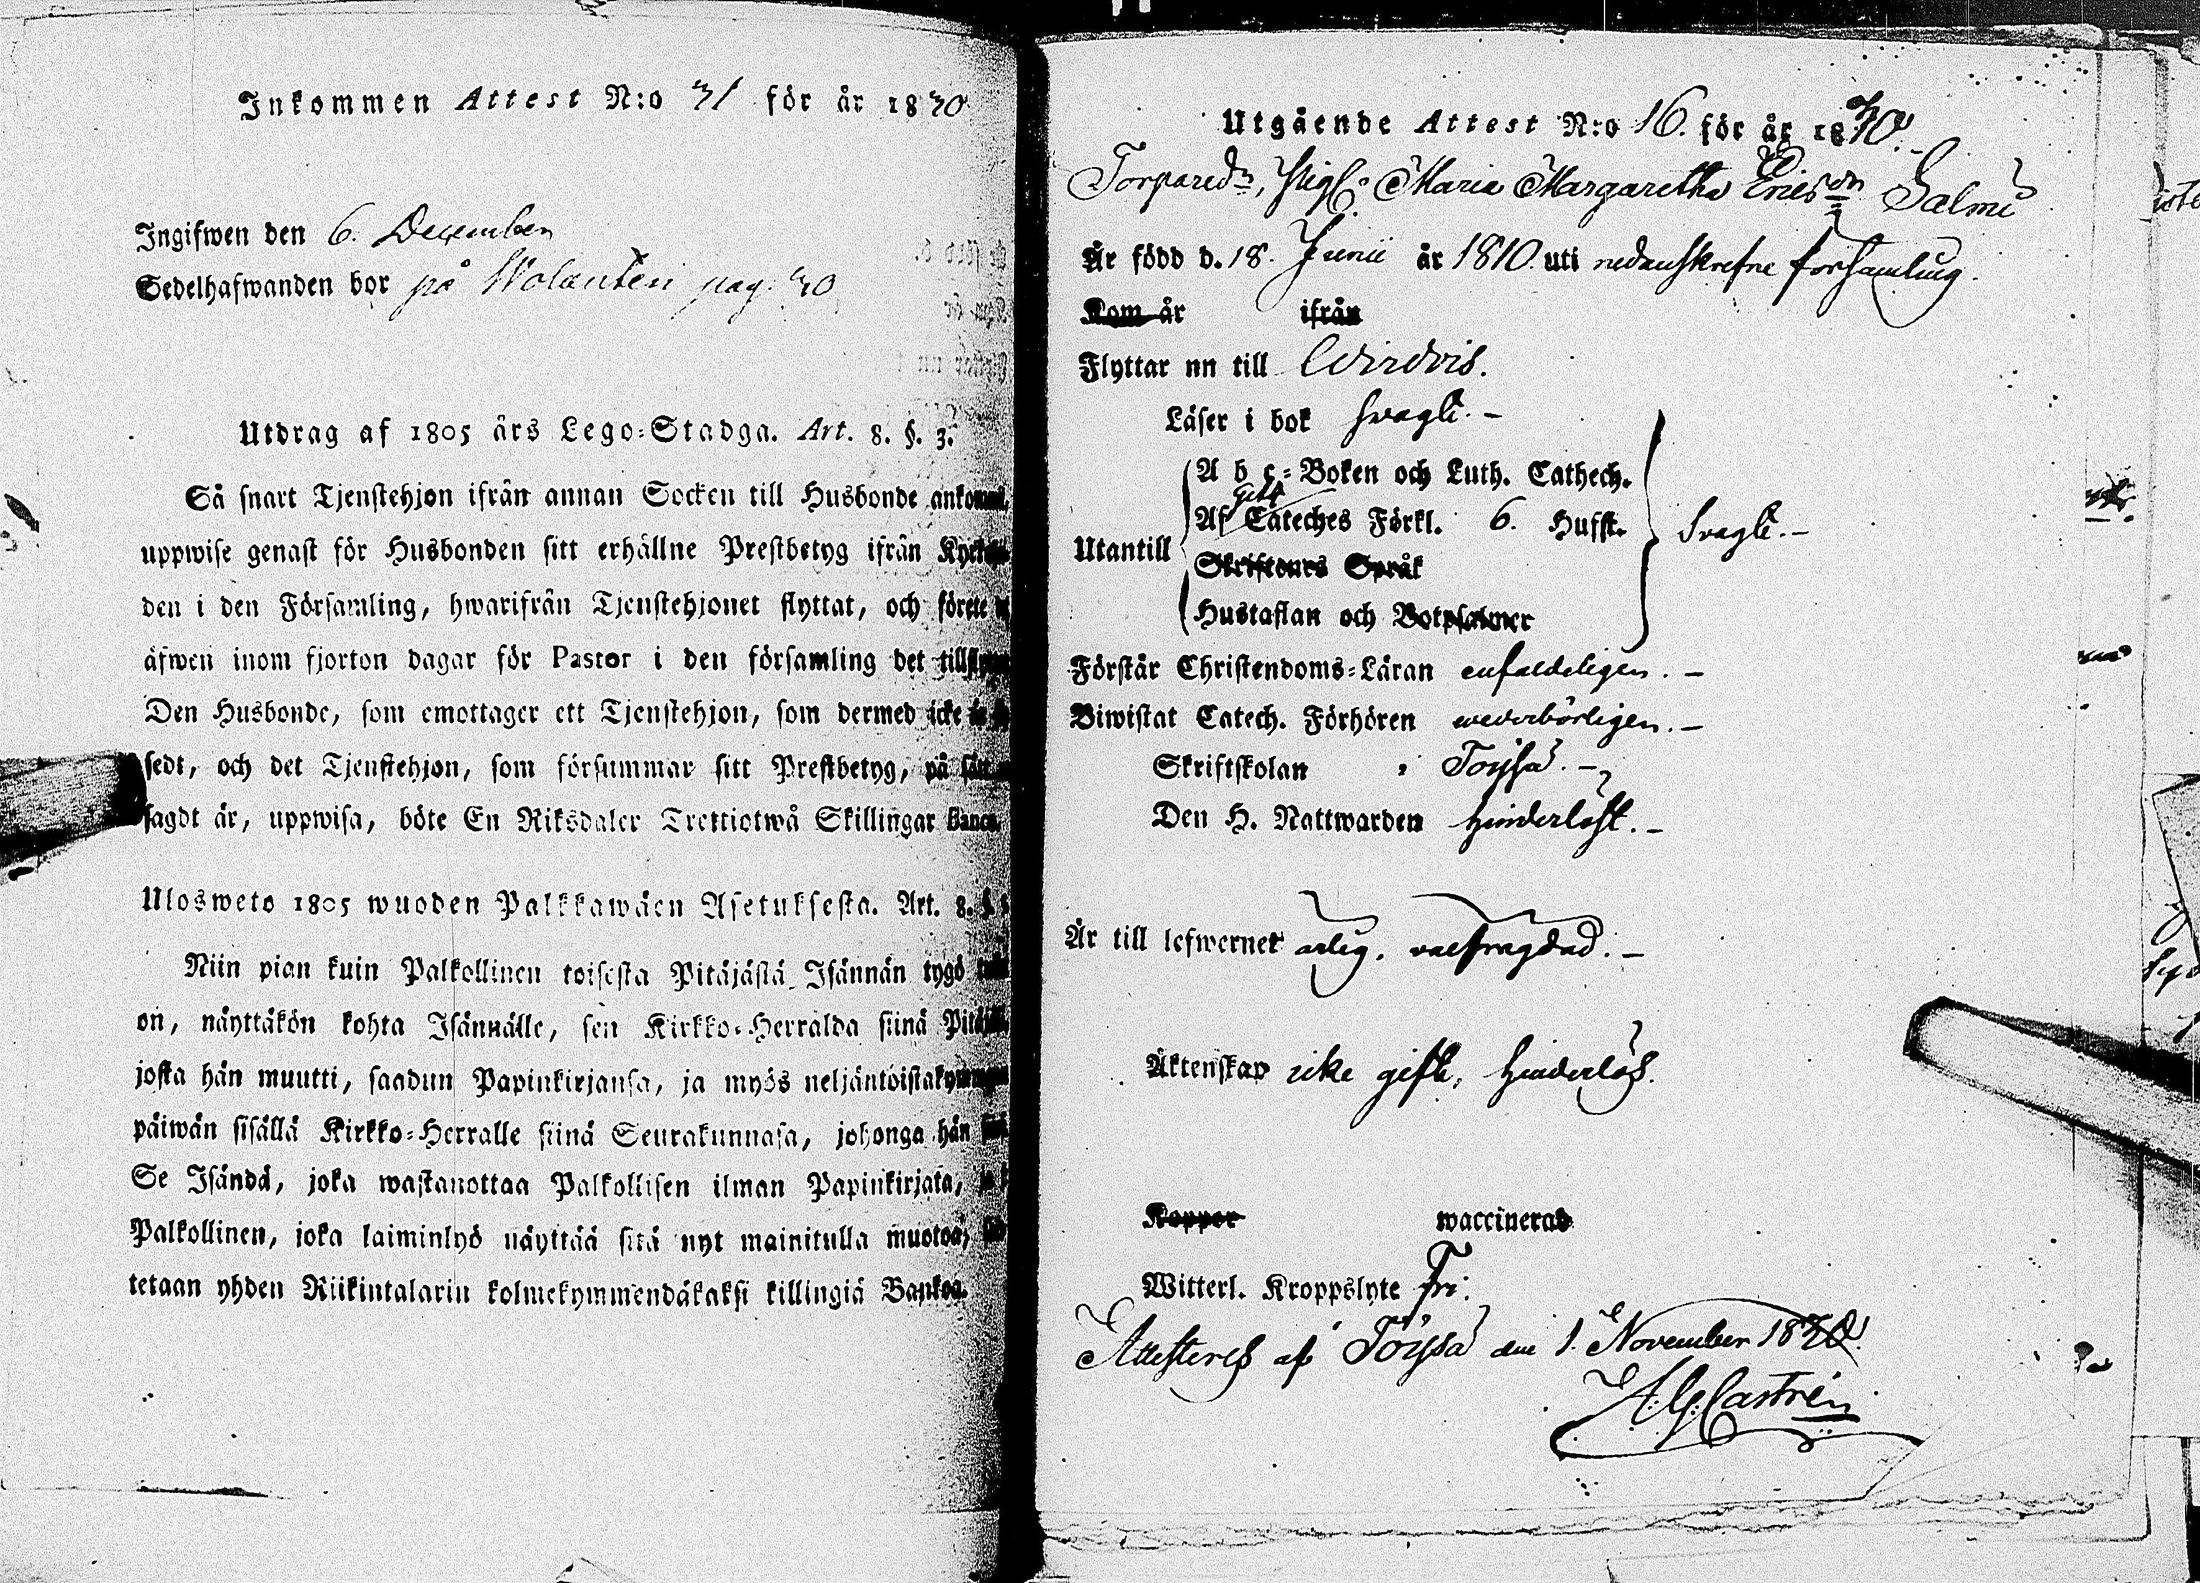 Inkommen Attest N:o 31 för år 1830
Ingifwen den 6. December
Sedelhafwanden bor på Wolanten pag: 30
Utdrag af 1805 års Lego-Stadga. Art. 8. §. 3.
Så snart Tjenstehjon ifrån annan Socken till Husbonde
uppwise genast för Husbonden sitt erhållne Prestbetyg ifrån
den i den Församling, hwarifrån Tjenstehjonet flyttat, och förete
äfwen inom fjorton dagar för Pastor i den församling det
Den Husbonde, som emottager ett Tjenstehjon, som dermed icke är
sedt, och det Tjenstehjon, som försummar sitt Prestbetyg, på sätt
sagdt är, uppwisa, böte En Riksdaler Trettiotwå Skillingar Banco.
Ulosweto 1805 wuoden Palkkawäen Asetuksesta. Art. 8. §
Niin pian kuin Palkollinen toisesta Pitäjästä Isännän tygö
on, näyttäkön kohta Isännälle, sen Kirkko-Herralda siinä
josta hän muutti, saadun Papinkirjansa, ja myös
päiwän sisällä Kirkko-Herralle siinä Seurakunnasa, johonga hän
Se Isändä, joka wastanottaa Palkollisen ilman Papinkirjata,
Palkollinen, joka laiminlyö näyttää sitä nyt mainitulla muotoa,
tetaan yhden Riikintalarin kolmekymmendäkaksi killingiä Bankoa.
Utgående Attest N:o 16. för år 1830.
Torpared:n, Pig: Maria Margaretha Ericsdn Salmi
Är född d. 18. Junii år 1810. uti nedanskrefne församling.
Kom år ifrån
Flyttar nu till Wirdois.
Läser i bok svagt. -
A b c-Boken och Luth. Cathech.
Af Cateches Förkl. 6. Hufst.
Utantill svagt. -
Skriftenes Språk
Hustaflan och Botpsalmer
Förstår Christendoms-Läran enfaldeligen. -
Biwistat Catech. Förhören wederbörligen. -
Skriftskolan Töysä. -
Den H. Nattwarden hinderlöst. -
Är till lefwernet ärlig, välfrägdad. -
Äktenskap icke gift, hinderlös.
Koppor waccinerad
Witterl. Kroppslyte fri.
Attesteres af Töysä den 1. November 1830.
A.G. Castrén